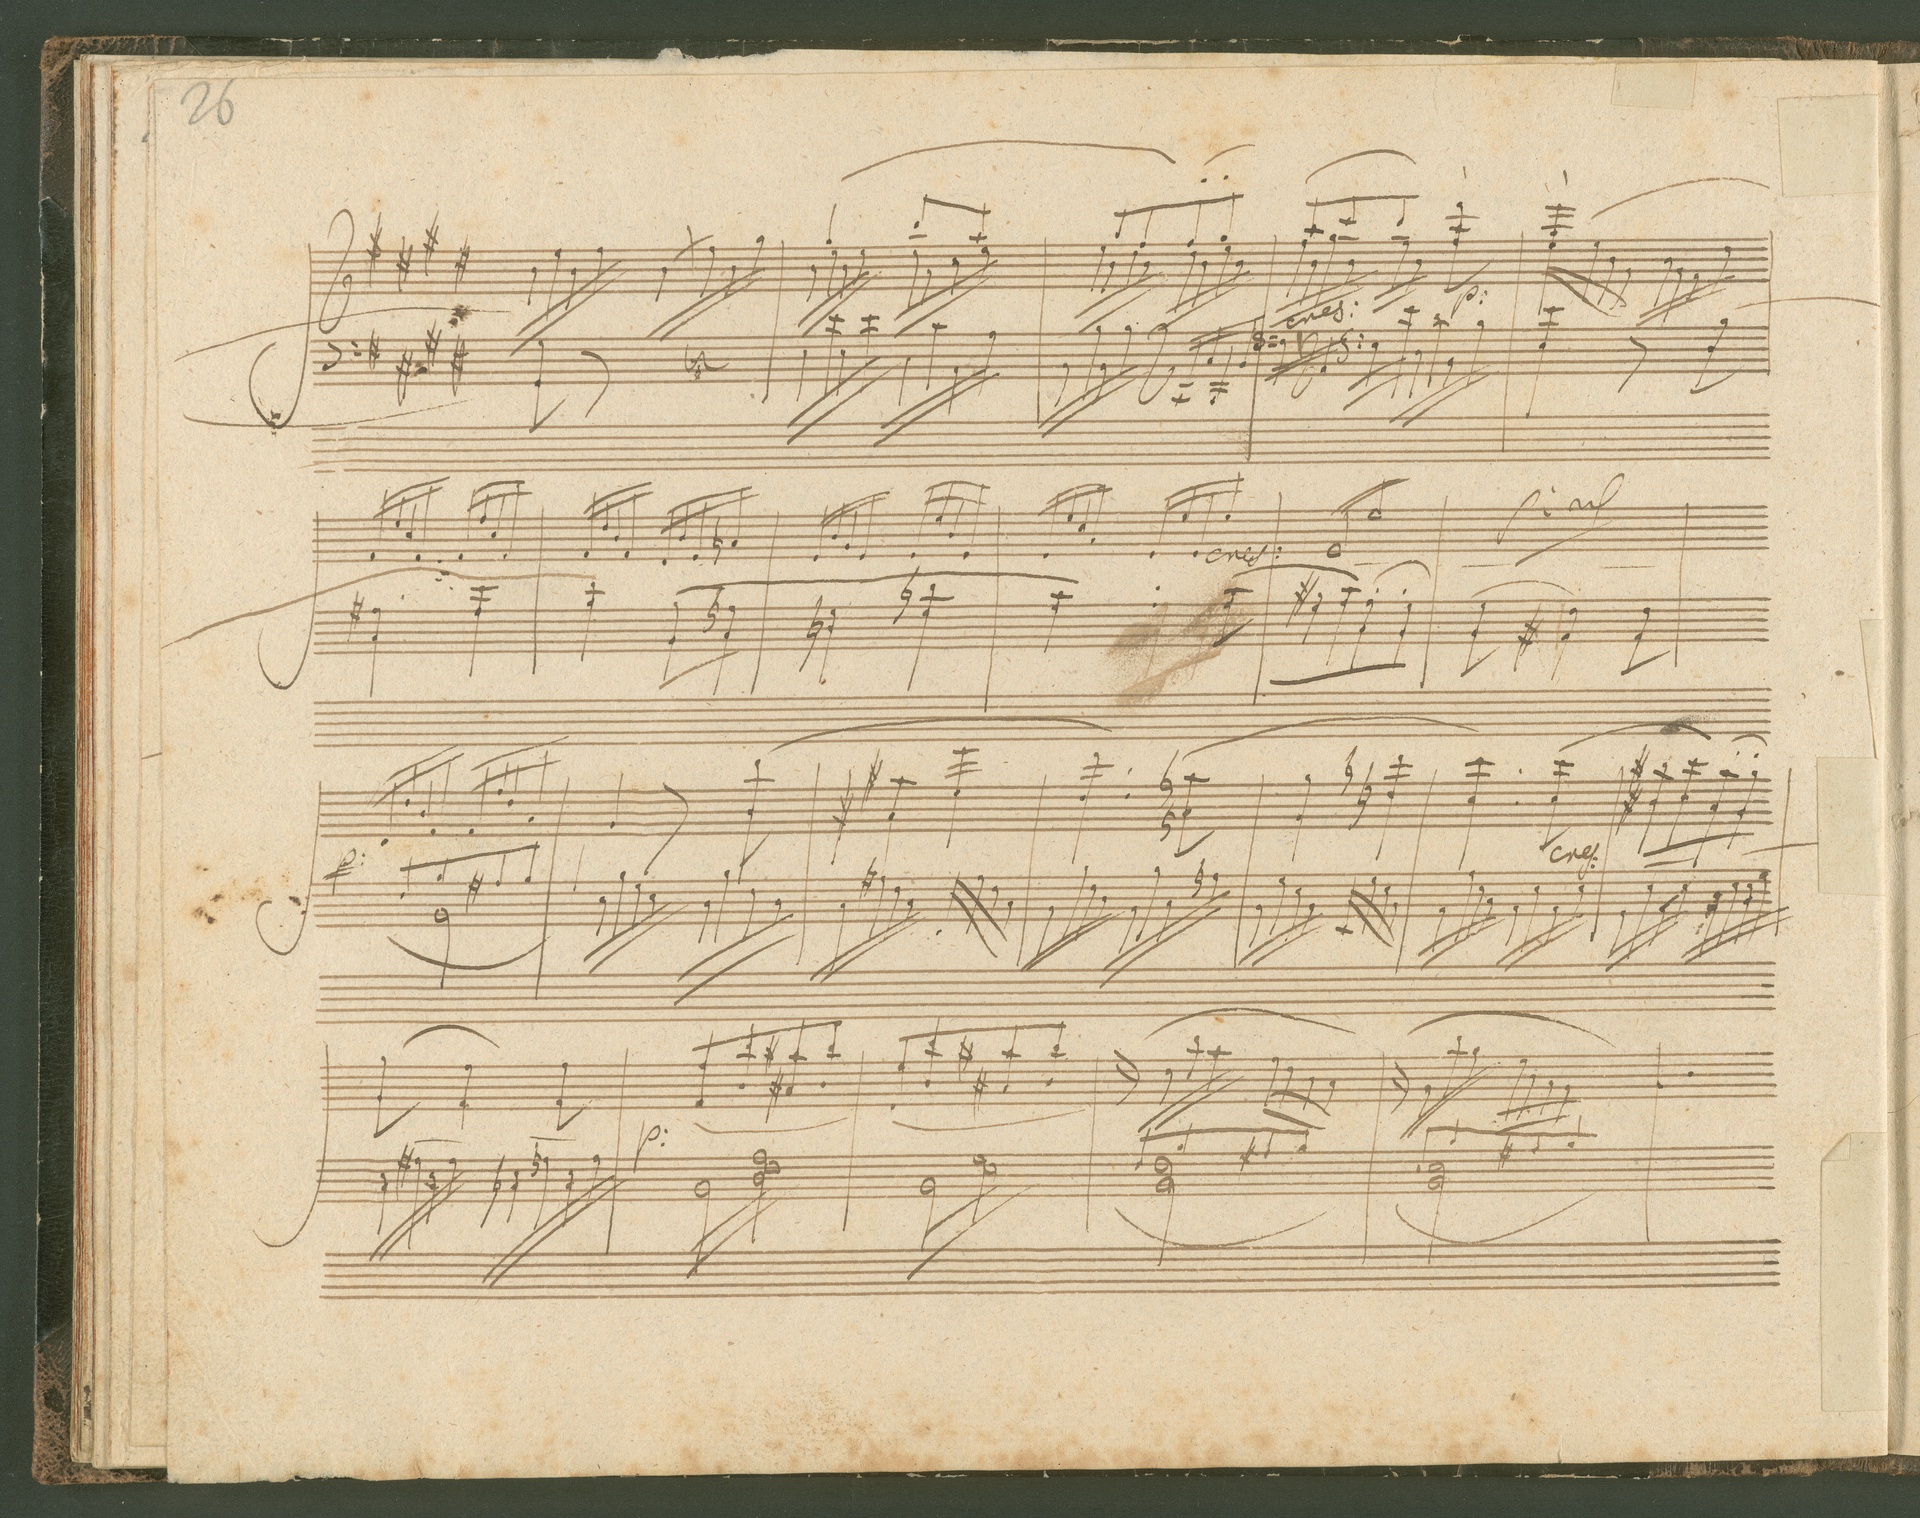 26
cres: p:
cres:
p:
cres:
p: